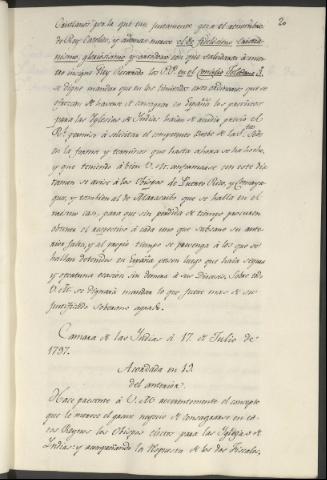 20
Cristianos por la que tan justamente goza el
de Rey Catolico, y ademas merece el de fidelisimo cristia-
nismo, piadosisimo y ortodoxo con que saludaron á nues-
tro insigne Rey Recaredo los P.P. en el Concilio Toledano 3.
se digne mandar que en los terminos extraordinarios que se
ofrezcan de hacerse el consagrar en España los provistos
para las Iglesias de Indias hayan de acudir previo el
R.l permiso á solicitar el competente Breve de la S.ta Sede
en la forma y terminos que hasta ahora se ha hecho,
y que teniendo á bien V. M. conformarse con este dic-
tamen se avise á los Obispos de Puerto Rico, y Comaya-
gua, y tambien al de Maracaibo que se halla en el
mismo caso, para que sin perdida de tiempo procuren
obtener el respectivo á cada uno que subsane su ante-
rior falta, y al propio tiempo se prevenga á los que se
hallan detenidos en España pasen luego que haya segura
y oportuna ocasion sin demora á sus Diocesis. Sobre todo
V. M. se dignará mandar lo que fuere mas de su
justificado soberano agrado.
Camara de las Indias á 17. de Julio de
1797.
Acordada en 13.
del anterior.
Hace presente á V. M. reverentemente el concepto
que le merece el grave negocio de consagrarse en es-
tos Reynos los Obispos electos para las Iglesias de
Indias: y acompañando la Respuesta de los dos Fiscales,